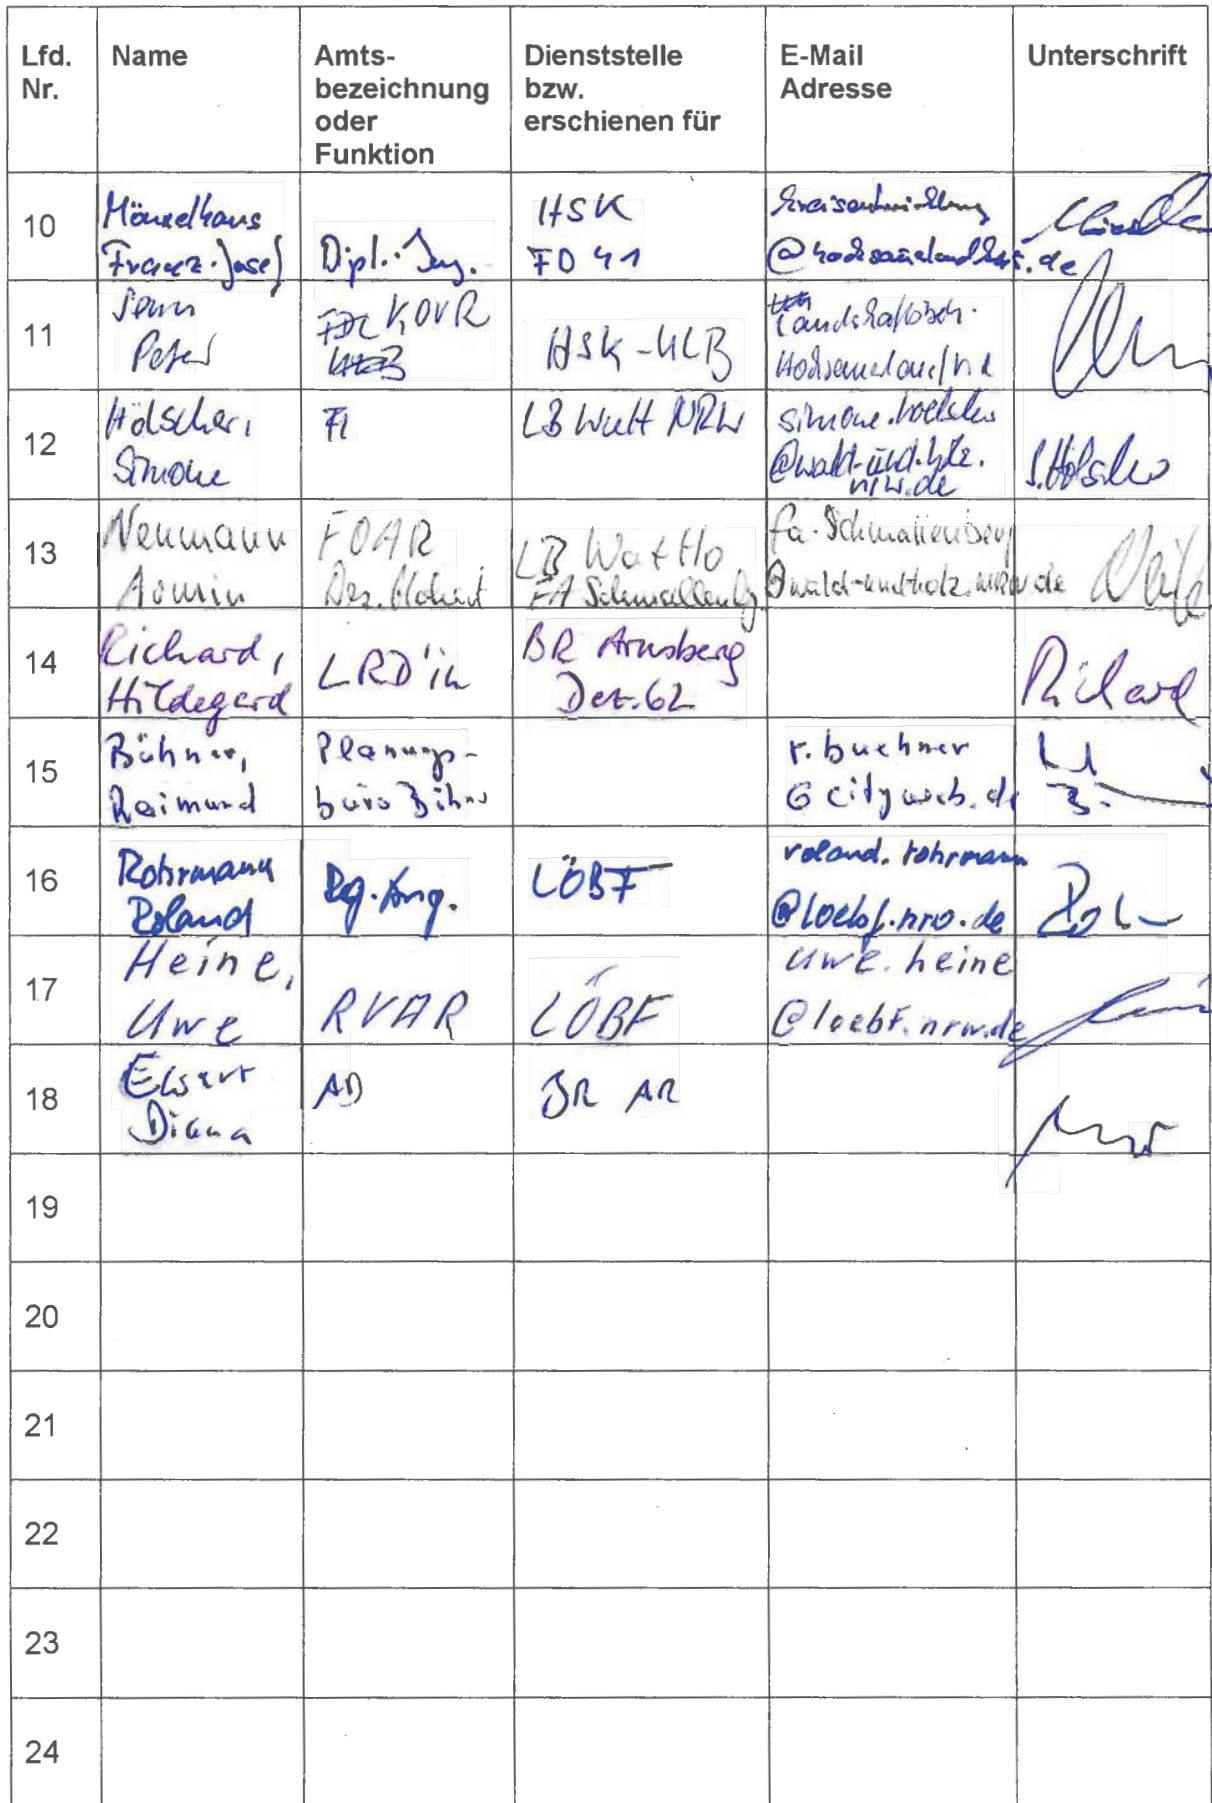 Lfd. Nr.
Name
Amts-
bezeichnung
oder
Funktion
Dienststelle
bzw.
erschienen für
E-Mail
Adresse
Unterschrift
10
Franz-Josef
Dipl.-Ing.
HSK
FD 41
kreisentwicklung
@hochsauerlandkreis.de
11
Peter
KOVR
HSK-ULB
12
Hölscher,
Simone
FI
LB WuH NRW
simone.hoelscher
@wald-und-holz.
nrw.de
S. Hölscher
13
Neumann
Armin
FOAR
LB Wa+Ho
FA Schmallenbg.
fa-schmallenberg
@wald-und-holz.nrw.de
14
Richard,
Hildegard
LRD'in
BR Arnsberg
Dez. 62
Richard
15
Bühner,
Raimund
Planungs-
büro Bühner
r.buehner
@cityweb.de
16
Rohrmann
Roland
Rg.Ang.
LÖBF
roland.rohrmann
@loebf.nrw.de
17
Heine,
Uwe
RVAR
LÖBF
uwe.heine
@loebf.nrw.de
18
Diana
BR AR
19
20
21
22
23
24